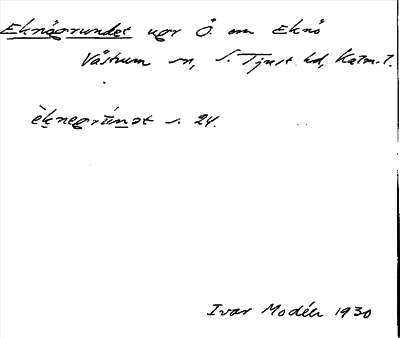 Eknögrundet ugr Ö. om Eknö
Västrum sn, S. Tjust hd, Kalm. l.
èknegrúnət s. 24.
Ivar Modéer 1930